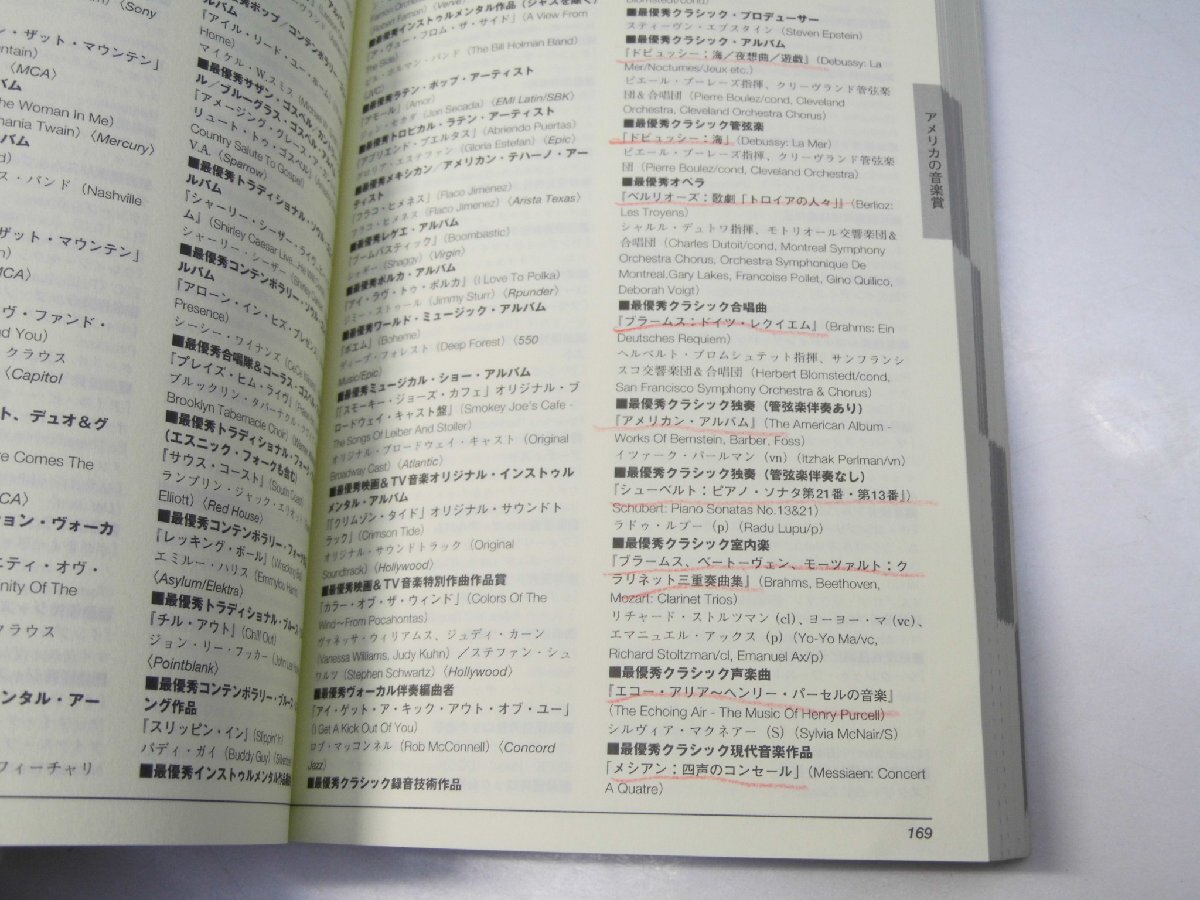 (Sony
ン・ザット・マウンテン」
〈MCA〉
バム
The Woman In Me)
Shania Twain)〈Mercury〉
バム
ス・バンド(Nashville
ザット・マウンテン」
ヴ・ファンド・
クラウス
〈Capitol
ト、デュオ&グ
ere Comes The
ション・ヴォーカ
ニティ・オヴ・
nity Of The
クラウス
ンタル・アー
フィーチャリ
「アイル・リード・ユー・ホーム」
Home)
マイケル・W.スミス
■最優秀サザン・ゴスペル、カントリー・ゴスペ
ル/ブルーグラス・ゴスペル・アルバム
『アメージング・グレース・ア・カントリー・サ
リュート・トゥ・ゴスペル』
Country Salute To Gospel)
V.A.〈Sparrow〉
■最優秀トラディショナル・ソウル・ゴスペル・
アルバム
『シャーリー・シーザー・ライヴ
ム』(Shirley Caesar Live
シャーリー・シーザー
■最優秀コンテンポラリー・ソウル・ゴスペル・
アルバム
『アローン・イン・ヒズ・プレゼンス』
Presence)
シーシー・ワイナンズ
■最優秀合唱隊&コーラス・ゴスペル
『プレイズ・ヒム・ライヴ』
ブルックリン・タバーナクル・クワイア
Brooklyn Tabernacle Choir)
■最優秀トラディショナル・フォーク
(エスニック・フォークも含む)
『サウス・コースト』(South Coast)
ランブリン・ジャック・エリオット
Elliott)〈Red House〉
■最優秀コンテンポラリー・フォーク
『レッキング・ボール』(Wrecking Ball)
エミルー・ハリス(Emmylou Harris)
〈Asylum/Elektra〉
■最優秀トラディショナル・ブルース
『チル・アウト』(Chill Out)
ジョン・リー・フッカー(John Lee
〈Pointblank〉
■最優秀コンテンポラリー・ブルース
ング作品
『スリッピン・イン』(Slippin' In)
バディ・ガイ(Buddy Guy)
■最優秀インストゥルメンタル作曲
Fabian Fabien)〈Verve〉
■最優秀インストゥルメンタル作品(ジャズを除く)
『ア・ヴュー・フロム・ザ・サイド』(A View From
The Side)
ビル・ホルマン・バンド(The Bill Holman Band)
〈JVC〉
■最優秀ラテン・ポップ・アーティスト
『アモール』(Amor)
ジョン・セカダ(Jon Secada)〈EMI Latin/SBK〉
■最優秀トロピカル・ラテン・アーティスト
『アブリエンド・プエルタス』(Abriendo Puertas)
グロリア・エステファン(Gloria Estefan)〈Epic〉
■最優秀メキシカン/アメリカン・テハーノ・アー
ティスト
『フラコ・ヒメネス』(Flaco Jimenez)
フラコ・ヒメネス(Flaco Jimenez)〈Arista Texas〉
■最優秀レゲエ・アルバム
『ブームバスティック』(Boombastic)
シャギー(Shaggy)〈Virgin〉
■最優秀ポルカ・アルバム
『アイ・ラヴ・トゥ・ポルカ』(I Love To Polka)
ジミー・ストゥール(Jimmy Sturr)〈Rpunder〉
■最優秀ワールド・ミュージック・アルバム
『ボエム』(Boheme)
ディープ・フォレスト(Deep Forest)〈550
Music/Epic〉
■最優秀ミュージカル・ショー・アルバム
『『スモーキー・ジョーズ・カフェ』オリジナル・ブ
ロードウェイ・キャスト盤』(Smokey Joe's Cafe -
The Songs Of Leiber And Stoller)
オリジナル・ブロードウェイ・キャスト(Original
Broadway Cast)〈Atlantic〉
■最優秀映画&TV音楽オリジナル・インストゥル
メンタル・アルバム
『『クリムゾン・タイド』オリジナル・サウンドト
ラック』(Crimson Tide)
オリジナル・サウンドトラック(Original
Soundtrack)〈Hollywood〉
■最優秀映画&TV音楽特別作曲作品賞
「カラー・オブ・ザ・ウィンド」(Colors Of The
Wind〜From Pocahontas)
ヴァネッサ・ウィリアムス、ジュディ・カーン
(Vanessa Williams, Judy Kuhn)/ステファン・シュ
ワルツ(Stephen Schwartz)〈Hollywood〉
■最優秀ヴォーカル伴奏編曲者
「アイ・ゲット・ア・キック・アウト・オブ・ユー」
(I Get A Kick Out Of You)
ロブ・マッコンネル(Rob McConnell)〈Concord
Jazz〉
■最優秀クラシック録音技術作品
Blomstedt/cond)
■最優秀クラシック・プロデューサー
スティーヴン・エプスタイン(Steven Epstein)
■最優秀クラシック・アルバム
『ドビュッシー:海/夜想曲/遊戯』(Debussy: La
Mer/Nocturnes/Jeux etc.)
ピエール・ブーレーズ指揮、クリーヴランド管弦楽
団&合唱団(Pierre Boulez/cond, Cleveland
Orchestra, Cleveland Orchestra Chorus)
■最優秀クラシック管弦楽
『ドビュッシー:海』(Debussy: La Mer)
ピエール・ブーレーズ指揮、クリーヴランド管弦楽
団(Pierre Boulez/cond, Cleveland Orchestra)
■最優秀オペラ
『ベルリオーズ:歌劇「トロイアの人々」』(Berlioz:
Les Troyens)
シャルル・デュトワ指揮、モトリオール交響楽団&
合唱団(Charles Dutoit/cond, Montreal Symphony
Orchestra Chorus, Orchestra Symphonique De
Montreal,Gary Lakes, Francoise Pollet, Gino Quilico,
Deborah Voigt)
■最優秀クラシック合唱曲
『ブラームス:ドイツ・レクイエム』(Brahms: Ein
Deutsches Requiem)
ヘルベルト・ブロムシュテット指揮、サンフランシ
スコ交響楽団&合唱団(Herbert Blomstedt/cond,
San Francisco Symphony Orchestra & Chorus)
■最優秀クラシック独奏(管弦楽伴奏あり)
『アメリカン・アルバム』(The American Album -
Works Of Bernstein, Barber, Foss)
イツァーク・パールマン(vn)(Itzhak Perlman/vn)
■最優秀クラシック独奏(管弦楽伴奏なし)
『シューベルト:ピアノ・ソナタ第21番・第13番』)
Schubert: Piano Sonatas No.13&21)
ラドゥ・ルプー(p)(Radu Lupu/p)
■最優秀クラシック室内楽
『ブラームス、ベートーヴェン、モーツァルト:ク
ラリネット三重奏曲集』(Brahms, Beethoven,
Mozart: Clarinet Trios)
リチャード・ストルツマン(cl)、ヨーヨー・マ(vc)、
エマニュエル・アックス(p)(Yo-Yo Ma/vc,
Richard Stoltzman/cl, Emanuel Ax/p)
■最優秀クラシック声楽曲
『エコー・アリア〜ヘンリー・パーセルの音楽』
(The Echoing Air - The Music Of Henry Purcell)
シルヴィア・マクネアー(S)(Sylvia McNair/S)
■最優秀クラシック現代音楽作品
「メシアン:四声のコンセール」(Messiaen: Concert
A Quatre)
アメリカの音楽賞
169